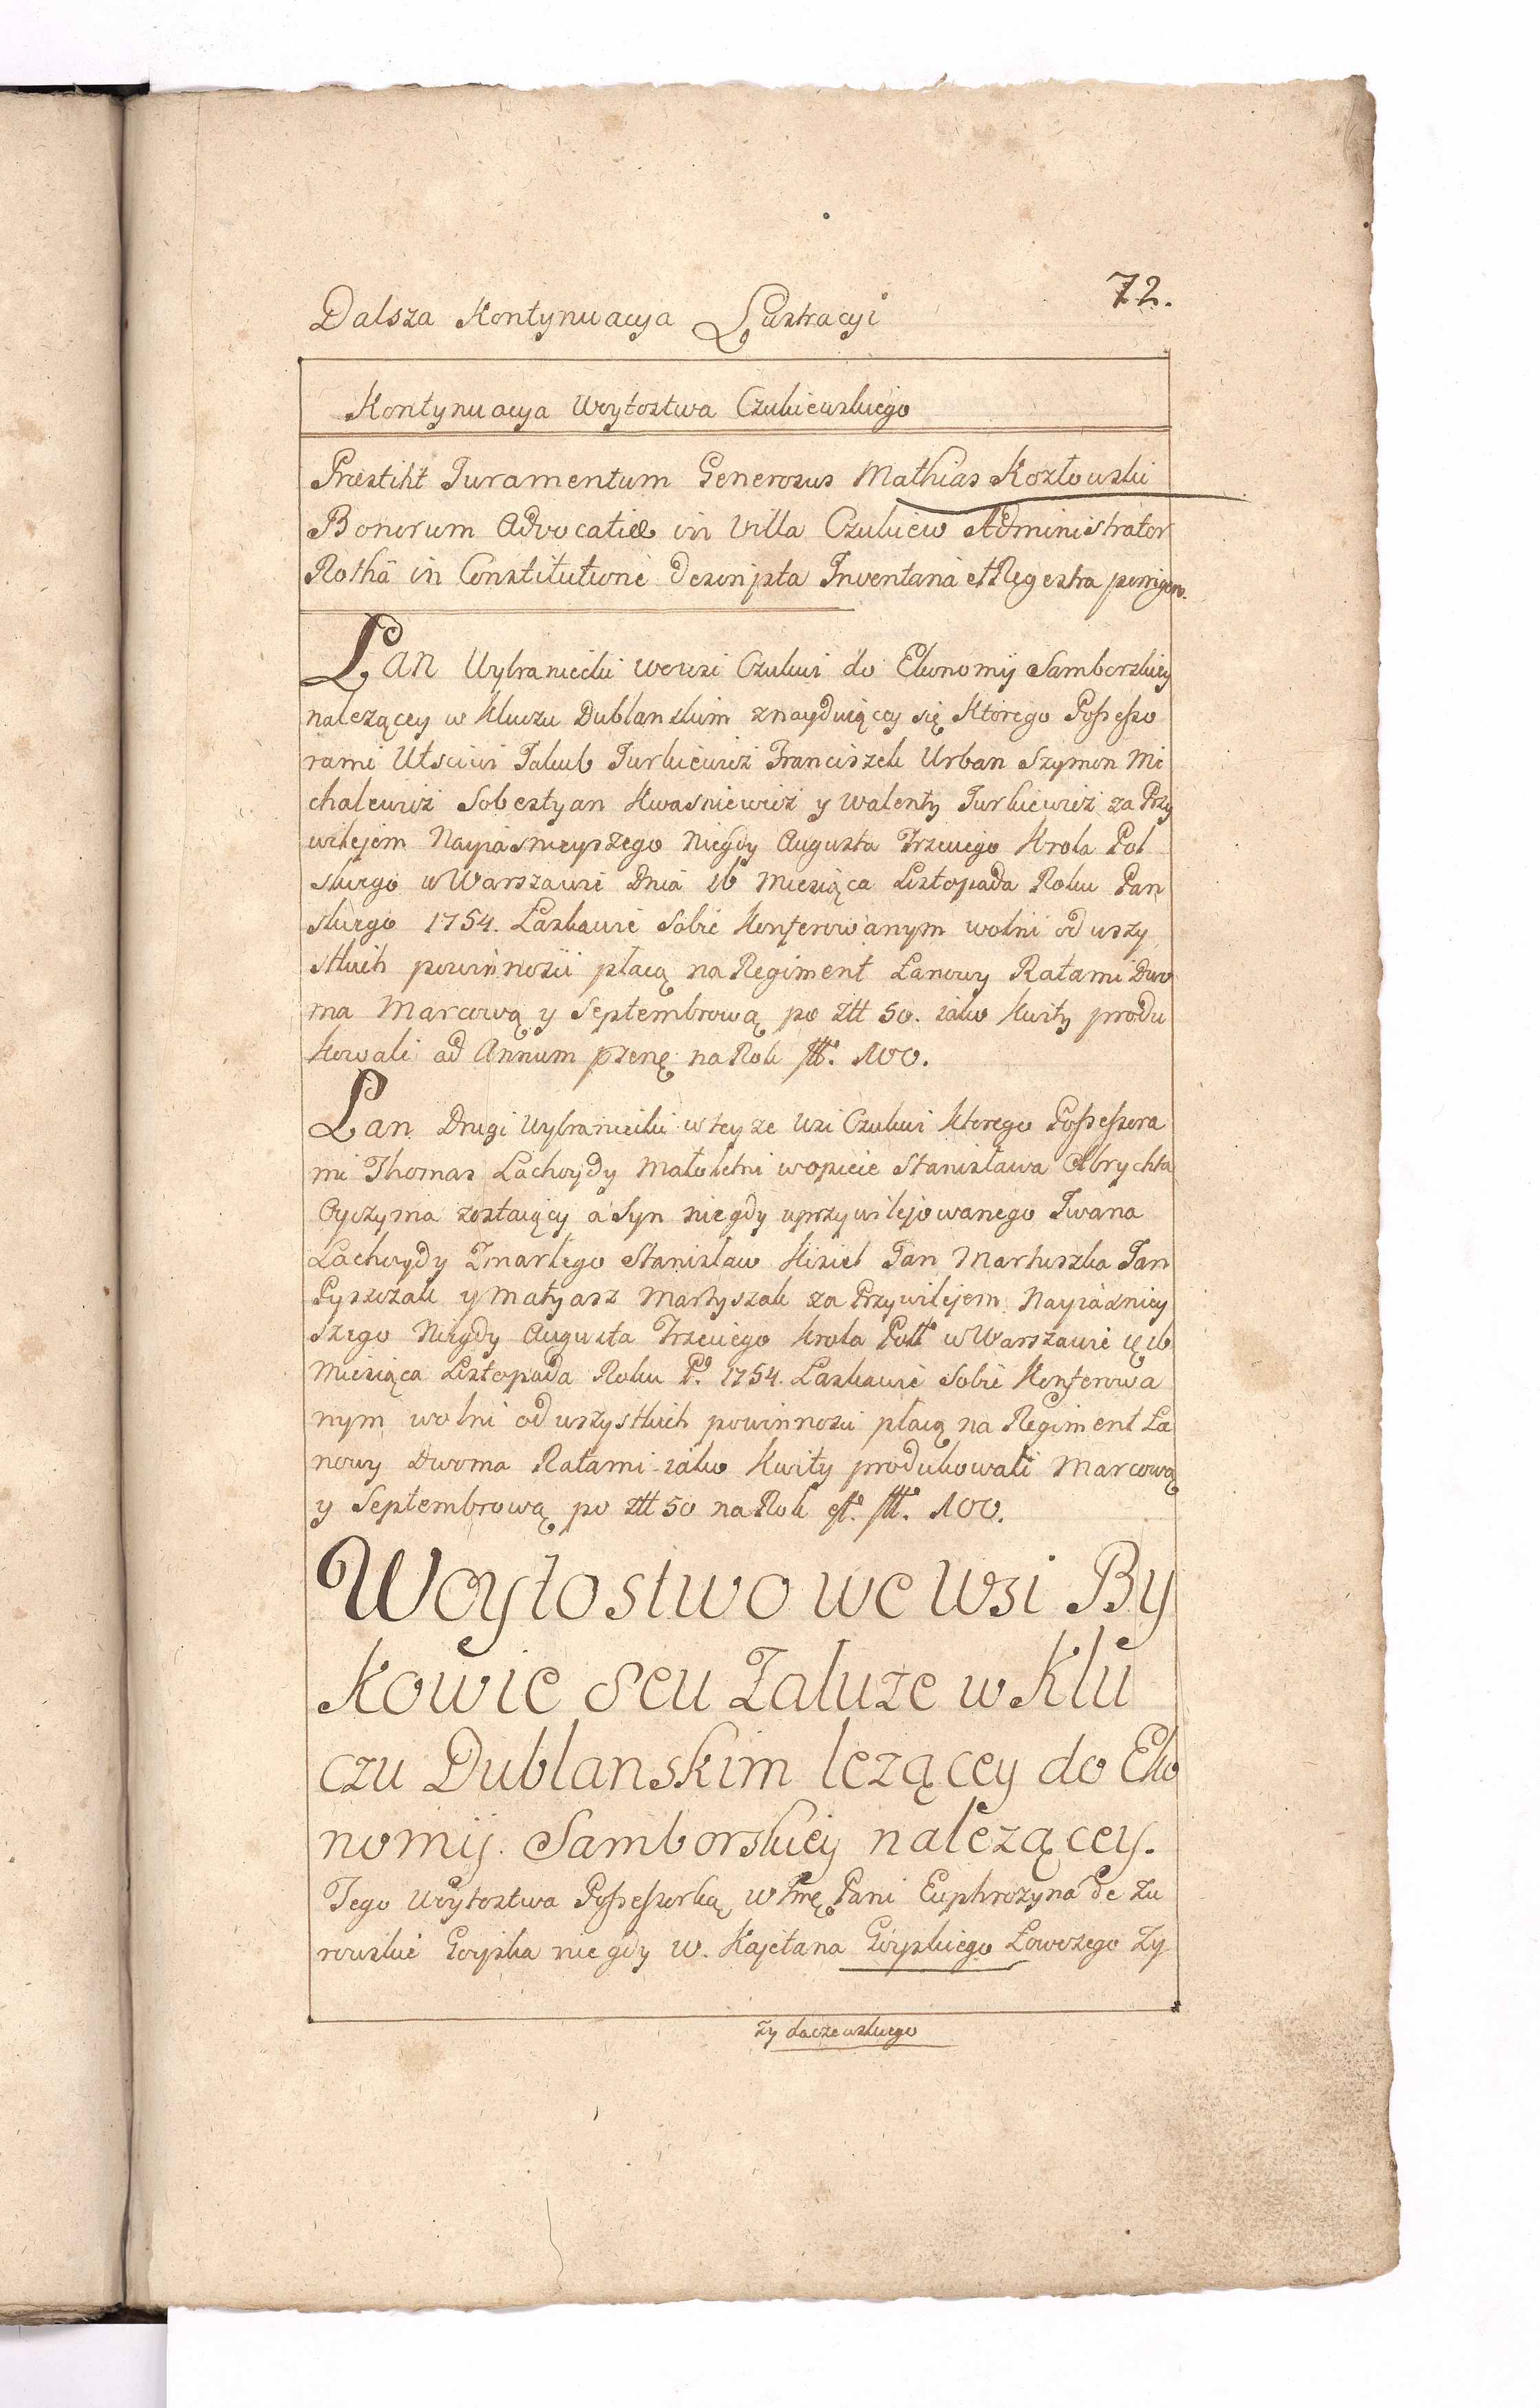 72.
Dalsza Kontynuacya Lustracyi
Kontynuacya Woytostwa Czukiewskiego
Præstitit Juramentum Generosus Mathias Kozłowski
Bonorum Advocatiæ in Villa Czukiew Administrator
Rothâ in Constitutione descripta Inventaria et Regestra porrigen.
Łan Wybraniecki we wsi Czukwi do Ekonomij Samborskiey
nalezącey w kluczu Dublanskim znayduiący się Ktorego Possesso
rami Utsciwi Jakub Jurkiewicz Franciszek Urban Szymon Mi
chalewicz Sobestyan Kwasniewicz y Walenty Jurkiewicz za Przy
wilejem Nayiasnieyszego Niegdy Augusta Trzeciego Krola Pol
skiego w Warszawie Dnia 16 Miesiąca Listopada Roku Pan
skiego 1754. Łaskawie Sobie Konferowanym wolni od wszy
stkich powinnosci płacą na Regiment Łanowy Ratami Dwo
ma Marcową y Septembrową po Złł 50. iako Kwity produ
kowali ad Annum na Rok fłł. 100.
Łan Drugi Wybraniecki w teyze Wsi Czukwi Ktorego Possessora
mi Thomas Lachoydy Małoletni w opiece Stanisława Olbrychta
Oyczyma zostaiący a Syn niegdy uprzywilejowanego Iwana
Lachoydy Zmarłego Stanislaw Kisiel Jan Martuszka Jan
Pyszczak y Matyasz Martyszak za Przywilejem Nayiasniey
szego Niegdy Augusta Trzeciego Krola Poll w Warszawie 16
Miesiąca Listopada Roku Pº 1754. Łaskawie Sobie Konferowa
nym wolni od wszystkich powinnosci płacą na Regiment Ła
nowy Dwoma Ratami iako Kwity produkowali Marcową
y Septembrową po złł 50 na Rok fłł. 100.
Woytostwo we Wsi By
kowie seu Zaluze w Klu
czu Dublanskim lezącey do Eko
nomij Samborskiey nalezącey.
Tego Woytostwa Possessorką W Jmę Pani Euphrozyna de Zu
rowskie Goyska niegdy W. Kajetana Goyskiego Łowczego Zy
Zydaczewskiego